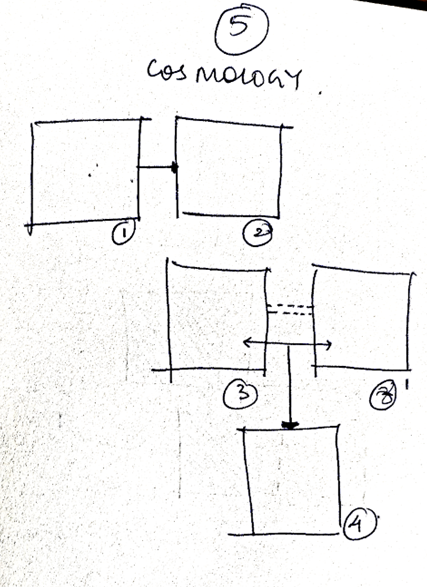 5
COSMOLOGY.
1
2
3
4